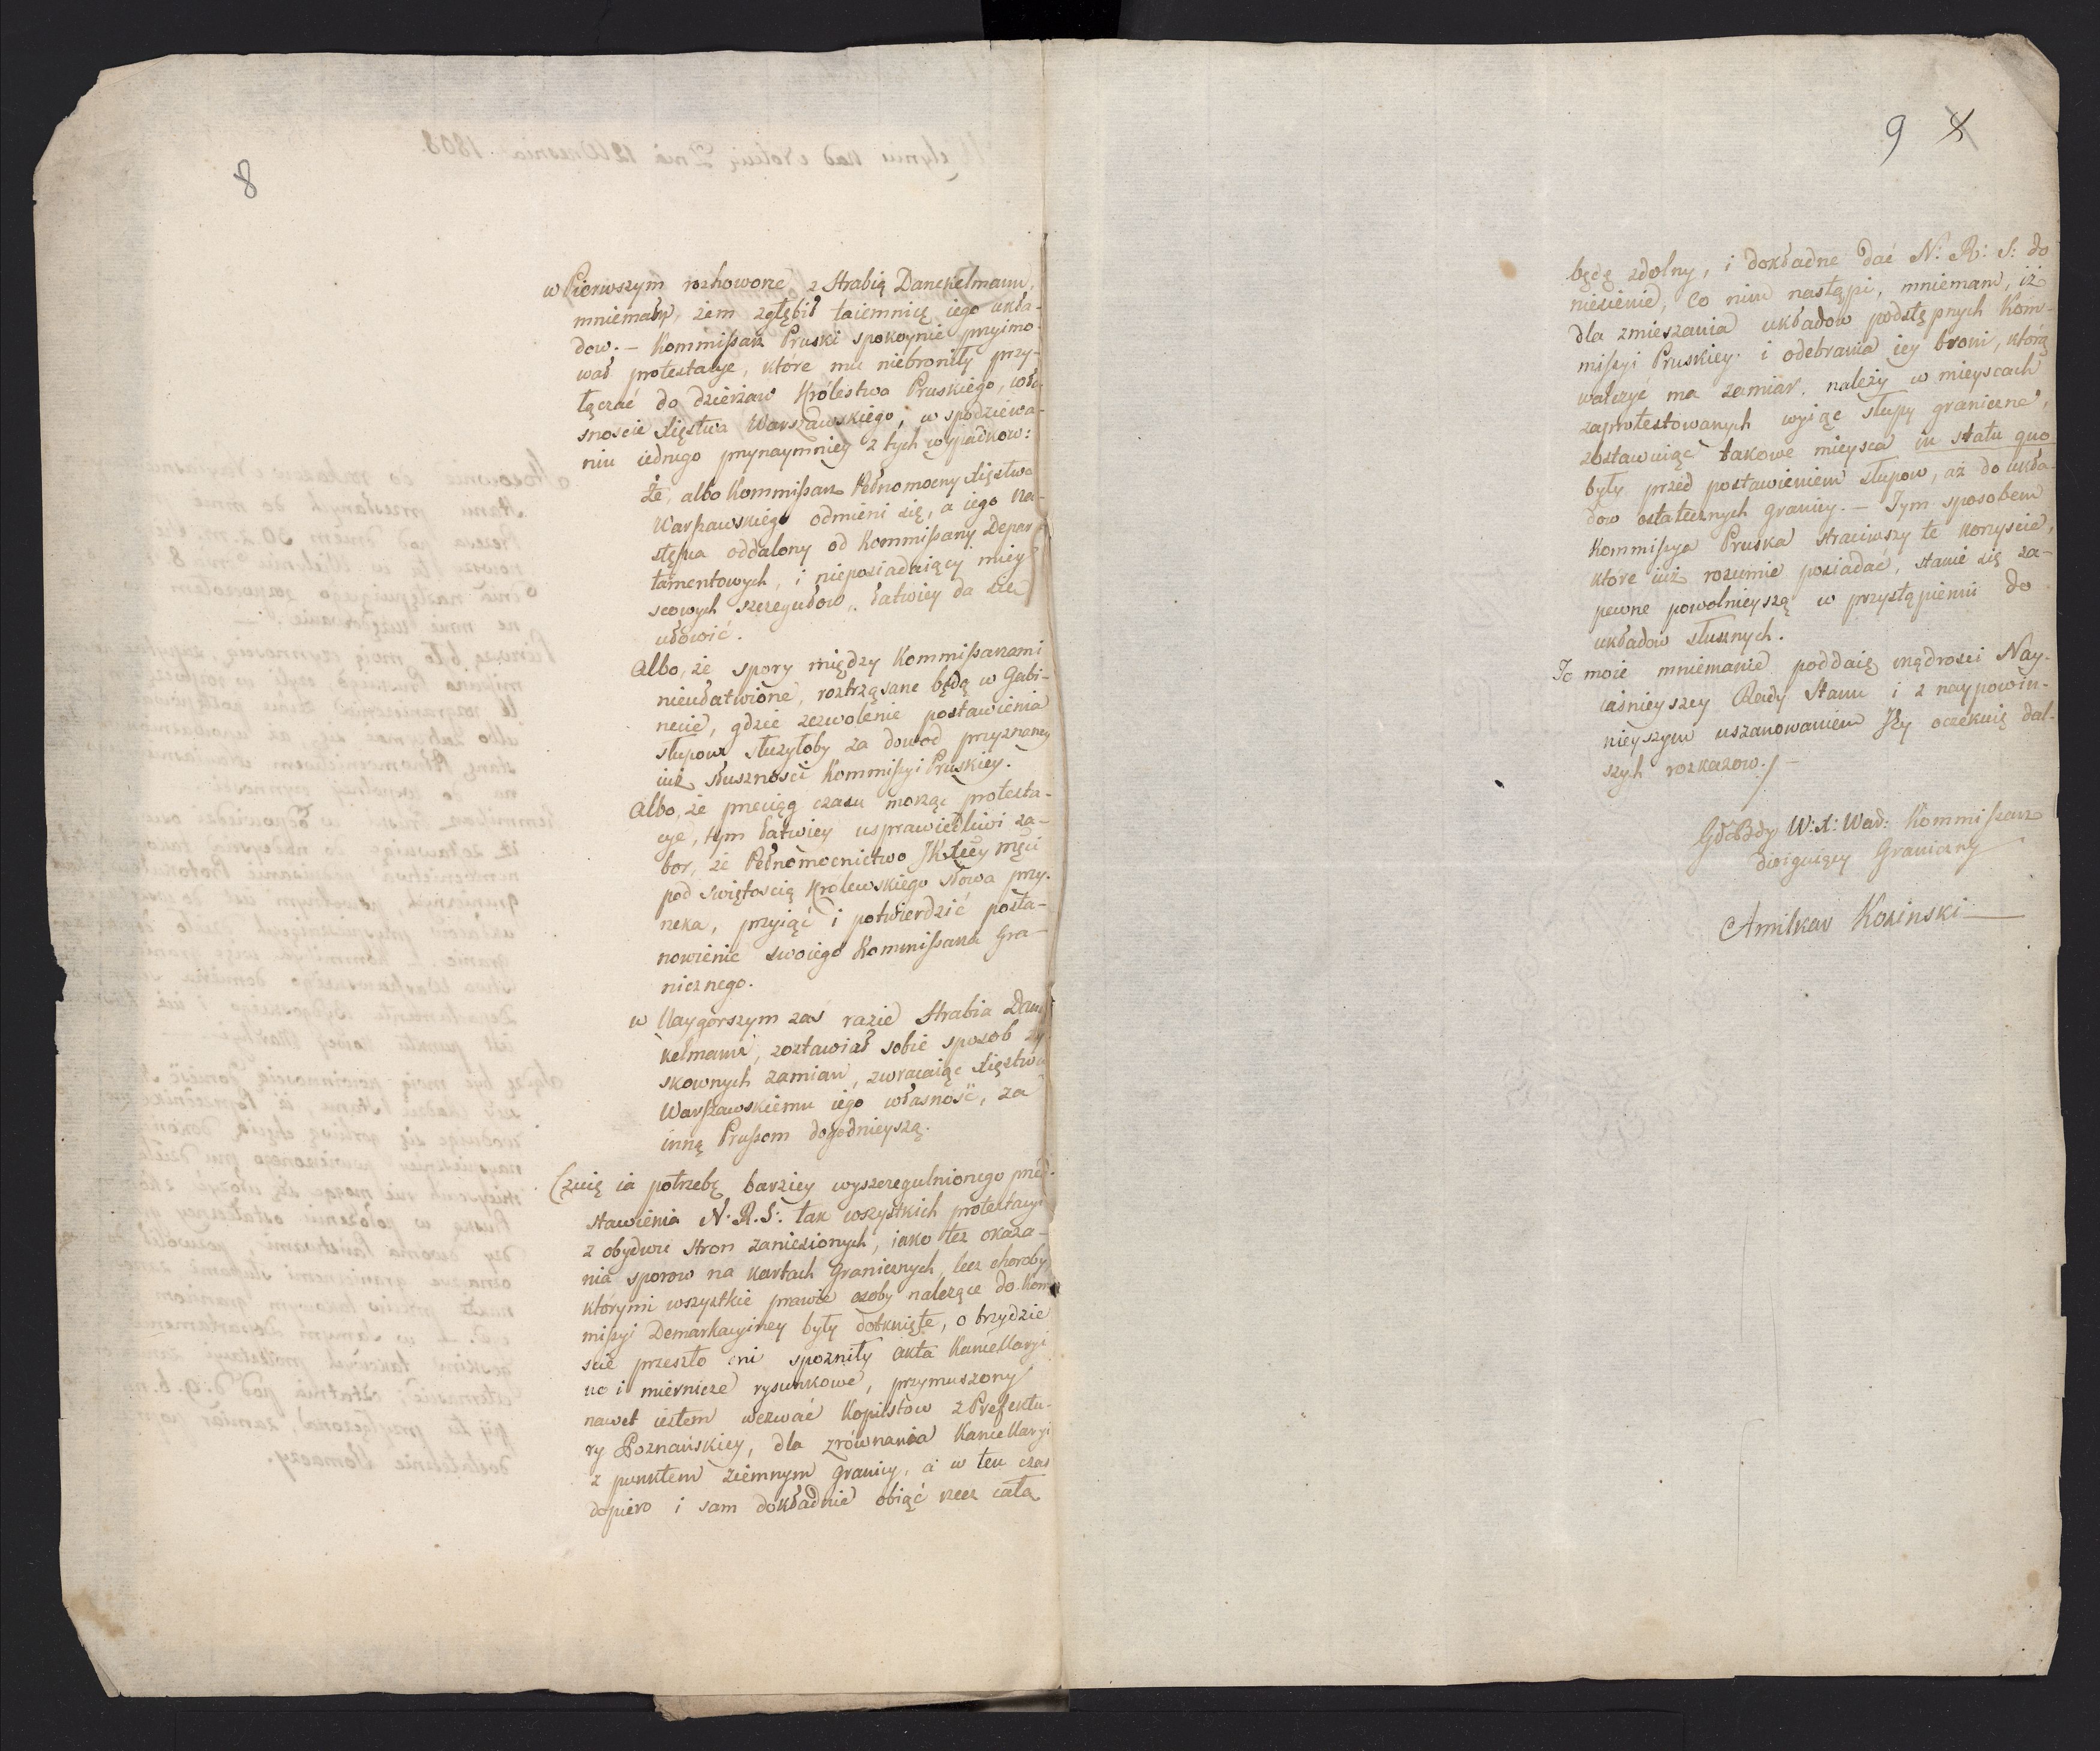 8
w Pierwszym rozhowore z Hrabią Danckelmann,
mniemałem, żem zgłębił taiemnicę iego ukła-
dow. — Kommißarz Pruski spokoynie przyimo-
wał protestacye, które mu niebroniły przy-
łączać do dzierżaw Królestwa Pruskiego, wła-
snoscie Xięstwa Warszawskiego, w spodziewa-
niu iednego przynaymniey z tych wypadkow:
Że, albo Kommißarz Pełnomocny Xięstwa
Warßawskiego odmieni się, a iego na-
stępca oddalony od Kommißarzy Depar-
tamentowych, i nieposiadaiący miey-
scowych szczegułow, łatwiey da się
ułowić.
Albo, że spory między Kommißarzami
nieułatwione, roztrząsane będą w Gabi-
necie, gdzie zezwolenie postawienia
słupow służyłoby za dowod przyznaney
iuż słusznosci Kommißyi Pruskiey.
Albo, że przeciąg czasu morząc protesta-
cye, tym łatwiey usprawiedliwi za-
bor, że Pełnomocnictwo JKrlecy Mści
pod swiętością Krolewskiego słowa przy-
rzeka, przyiąć i potwierdzić posta-
nowienie swoiego Kommißarza Gra-
nicznego.
w Naygorszym zaś razie Hrabia Dan-
kelmann, zostawiał sobie sposob zy-
skownych zamian, zwracaiąc Xięstwu
Warßawskiemu iego własność, za
inną Prußom dogodnieyszą.
Czuię ia potrzebę barziey wyszczegulnionego przed-
stawienia N. R. S: tak wszystkich protestacyi
z obydwu stron zaniesionych, iako też okaza-
nia sporow na kartach Granicznych, lecz choroby
którymi wszystkie prawie osoby należące do Kom-
mißyi Demarkacyiney były dotknięte, o trzydzie
scie przeszło dni spozniły akta Kancellaryi
ne i miernicze rysunkowe, przymuszony
nawet iestem wezwać Kopiistow z Prefektu-
ry Poznańskiey, dla zrównania Kancellaryi
z punktem ziemnym granicy, a w ten czas
dopiero i sam dokładnie obiąć rzecz całą
9 8
będę zdolny, i dokładne dać N: R: S: do
niesienie, Co nim nastąpi, mniemam, iż
dla zmieszania układow podstępnych Kom-
mißyi Pruskiey i odebrania iey broni, którą
walczyć ma zamiar, należy w mieyscach
zaprotestowanych wyiąc słupy graniczne,
zostawuiąc takowe mieysca in statu quo
były przed postawieniem słupow, aż do ukła-
dow ostatecznych granicy. — Tym sposobem
Kommißya Pruska straciwszy te korzyscie,
które iuż rozumie posiadać, stanie się za-
pewne powolnieyszą w przystąpieniu do
układow słusznych.
To moie mniemanie poddaię mądrosci Nay-
iaśnieyszey Rady Stanu i z naypowin-
nieyszym uszanowaniem Jey oczekuię dal-
szych rozkazow. / —
W: X: War: Kommißarz
Graniczny
Amilkar Kosinski